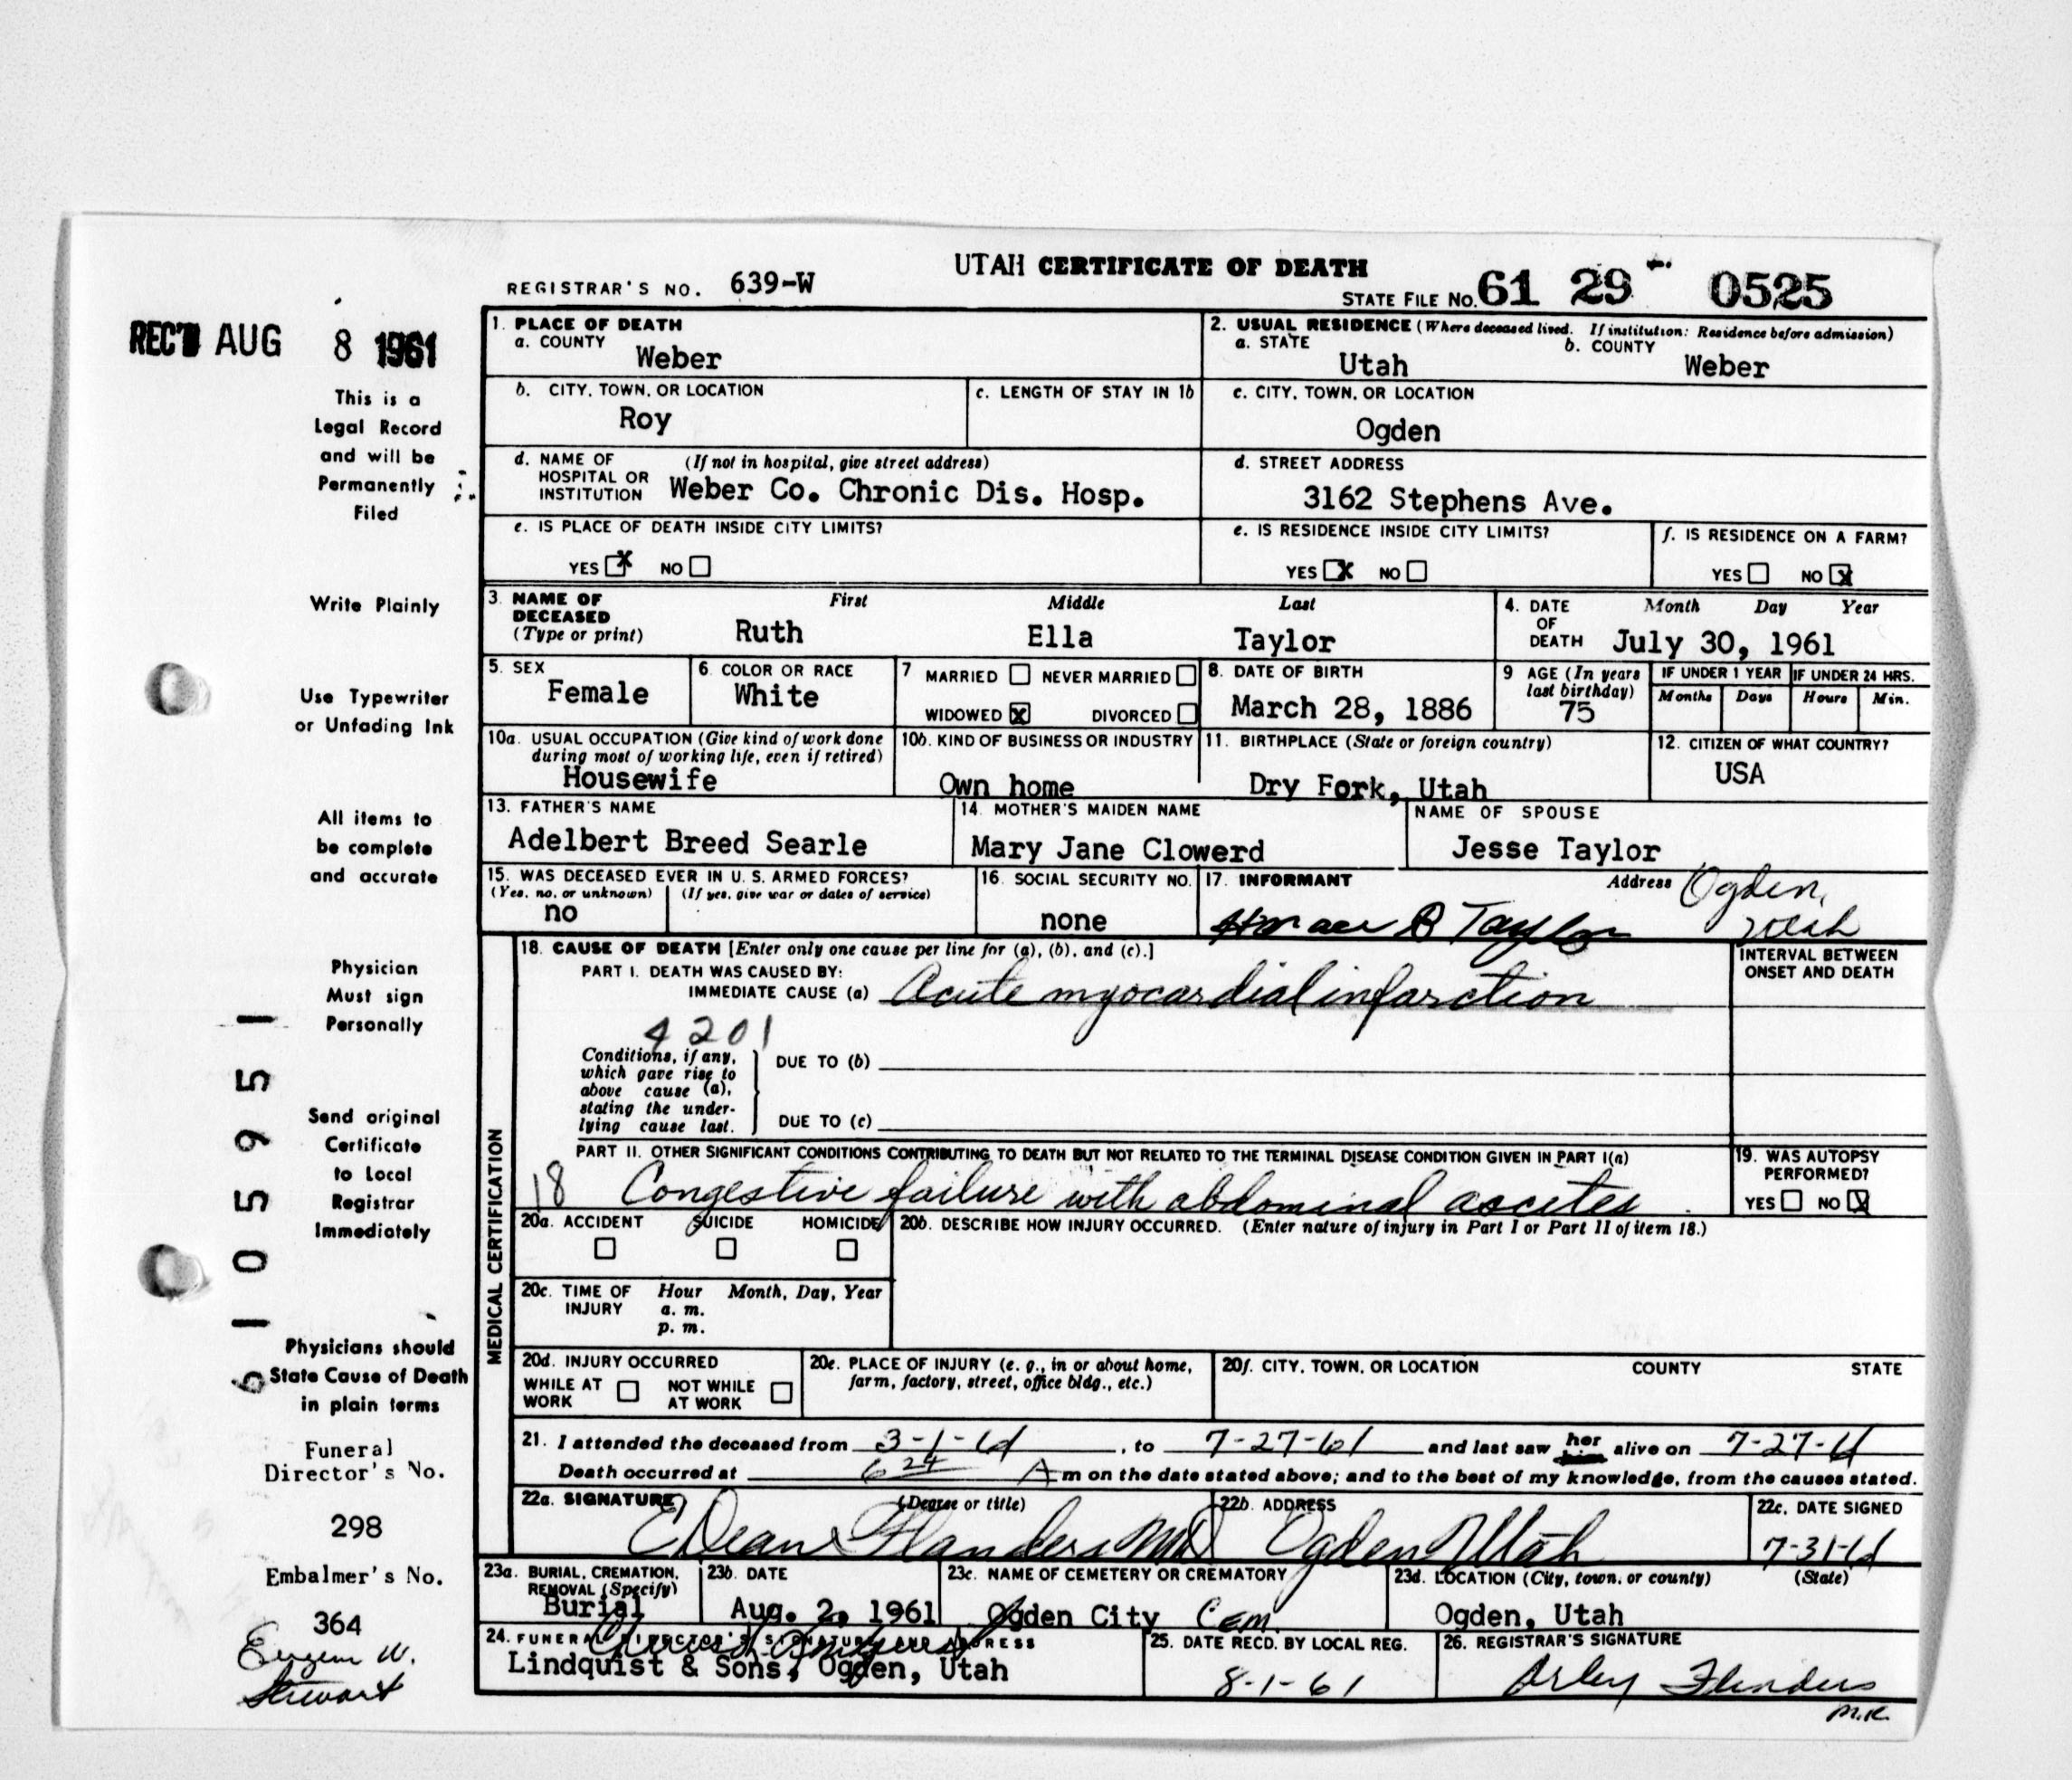 UTAH CERTIFICATE OF DEATH
REGISTRAR'S NO. 639-W
STATE FILE No. 61 29 0525
REC'D AUG 8 1961
This is a
Legal Record
and will be
Permanently
Filed
Write Plainly
Use Typewriter
or Unfading Ink
All items to
be complete
and accurate
Physician
Must sign
Personally
Send original
Certificate
to Local
Registrar
Immediately
Physicians should
State Cause of Death
in plain terms
Funeral
Director's No.
298
Embalmer's No.
364
Eugene W.
Stewart
6105951
1. PLACE OF DEATH
a. COUNTY
Weber
2. USUAL RESIDENCE (Where deceased lived. If institution: Residence before admission)
a. STATE b. COUNTY
Utah Weber
b. CITY, TOWN, OR LOCATION
Roy
c. LENGTH OF STAY IN 1b
c. CITY, TOWN, OR LOCATION
Ogden
d. NAME OF HOSPITAL OR INSTITUTION (If not in hospital, give street address)
Weber Co. Chronic Dis. Hosp.
d. STREET ADDRESS
3162 Stephens Ave.
e. IS PLACE OF DEATH INSIDE CITY LIMITS?
YES X NO
e. IS RESIDENCE INSIDE CITY LIMITS?
YES X NO
f. IS RESIDENCE ON A FARM?
YES NO X
3. NAME OF DECEASED (Type or print)
First Middle Last
Ruth Ella Taylor
4. DATE OF DEATH Month Day Year
July 30, 1961
5. SEX
Female
6. COLOR OR RACE
White
7 MARRIED NEVER MARRIED
WIDOWED X DIVORCED
8. DATE OF BIRTH
March 28, 1886
9 AGE (In years last birthday)
75
IF UNDER 1 YEAR IF UNDER 24 HRS.
Months Days Hours Min.
10a. USUAL OCCUPATION (Give kind of work done during most of working life, even if retired)
Housewife
10b. KIND OF BUSINESS OR INDUSTRY
Own home
11. BIRTHPLACE (State or foreign country)
Dry Fork, Utah
12. CITIZEN OF WHAT COUNTRY?
USA
13. FATHER'S NAME
Adelbert Breed Searle
14. MOTHER'S MAIDEN NAME
Mary Jane Clowerd
NAME OF SPOUSE
Jesse Taylor
15. WAS DECEASED EVER IN U. S. ARMED FORCES?
(Yes, no, or unknown) (If yes, give war or dates of service)
no
16. SOCIAL SECURITY NO.
none
17. INFORMANT Address
Horace B Taylor Ogden, Utah
MEDICAL CERTIFICATION
18. CAUSE OF DEATH [Enter only one cause per line for (a), (b), and (c).]
INTERVAL BETWEEN ONSET AND DEATH
PART I. DEATH WAS CAUSED BY:
IMMEDIATE CAUSE (a) Acute myocardial infarction
4201
Conditions, if any, which gave rise to above cause (a), stating the underlying cause last.
DUE TO (b)
DUE TO (c)
PART II. OTHER SIGNIFICANT CONDITIONS CONTRIBUTING TO DEATH BUT NOT RELATED TO THE TERMINAL DISEASE CONDITION GIVEN IN PART I(a)
18 Congestive failure with abdominal ascites
19. WAS AUTOPSY PERFORMED?
YES NO X
20a. ACCIDENT SUICIDE HOMICIDE
20b. DESCRIBE HOW INJURY OCCURRED. (Enter nature of injury in Part I or Part II of item 18.)
20c. TIME OF INJURY Hour Month, Day, Year
a. m.
p. m.
20d. INJURY OCCURRED
WHILE AT WORK NOT WHILE AT WORK
20e. PLACE OF INJURY (e. g., in or about home, farm, factory, street, office bldg., etc.)
20f. CITY, TOWN, OR LOCATION COUNTY STATE
21. I attended the deceased from 3-1-61, to 7-27-61 and last saw her him alive on 7-27-61
Death occurred at 6 24 A m on the date stated above; and to the best of my knowledge, from the causes stated.
22a. SIGNATURE (Degree or title)
E Dean Flanders MD
22b. ADDRESS
Ogden Utah
22c. DATE SIGNED
7-31-61
23a. BURIAL, CREMATION, REMOVAL (Specify)
Burial
23b. DATE
Aug. 2, 1961
23c. NAME OF CEMETERY OR CREMATORY
Ogden City Cem.
23d. LOCATION (City, town, or county) (State)
Ogden, Utah
24. FUNERAL DIRECTOR'S SIGNATURE AND ADDRESS
Lindquist & Sons, Ogden, Utah
25. DATE RECD. BY LOCAL REG.
8-1-61
26. REGISTRAR'S SIGNATURE
Orley Flinders
M.R.